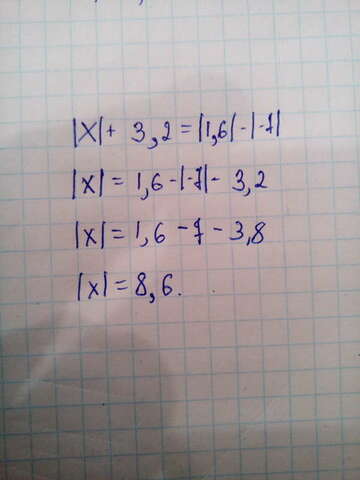 |X| + 3,2 = |1,6| - |-7|
|x| = 1,6 - |-7| - 3,2
|x| = 1,6 - 7 - 3,8
|x| = 8,6.